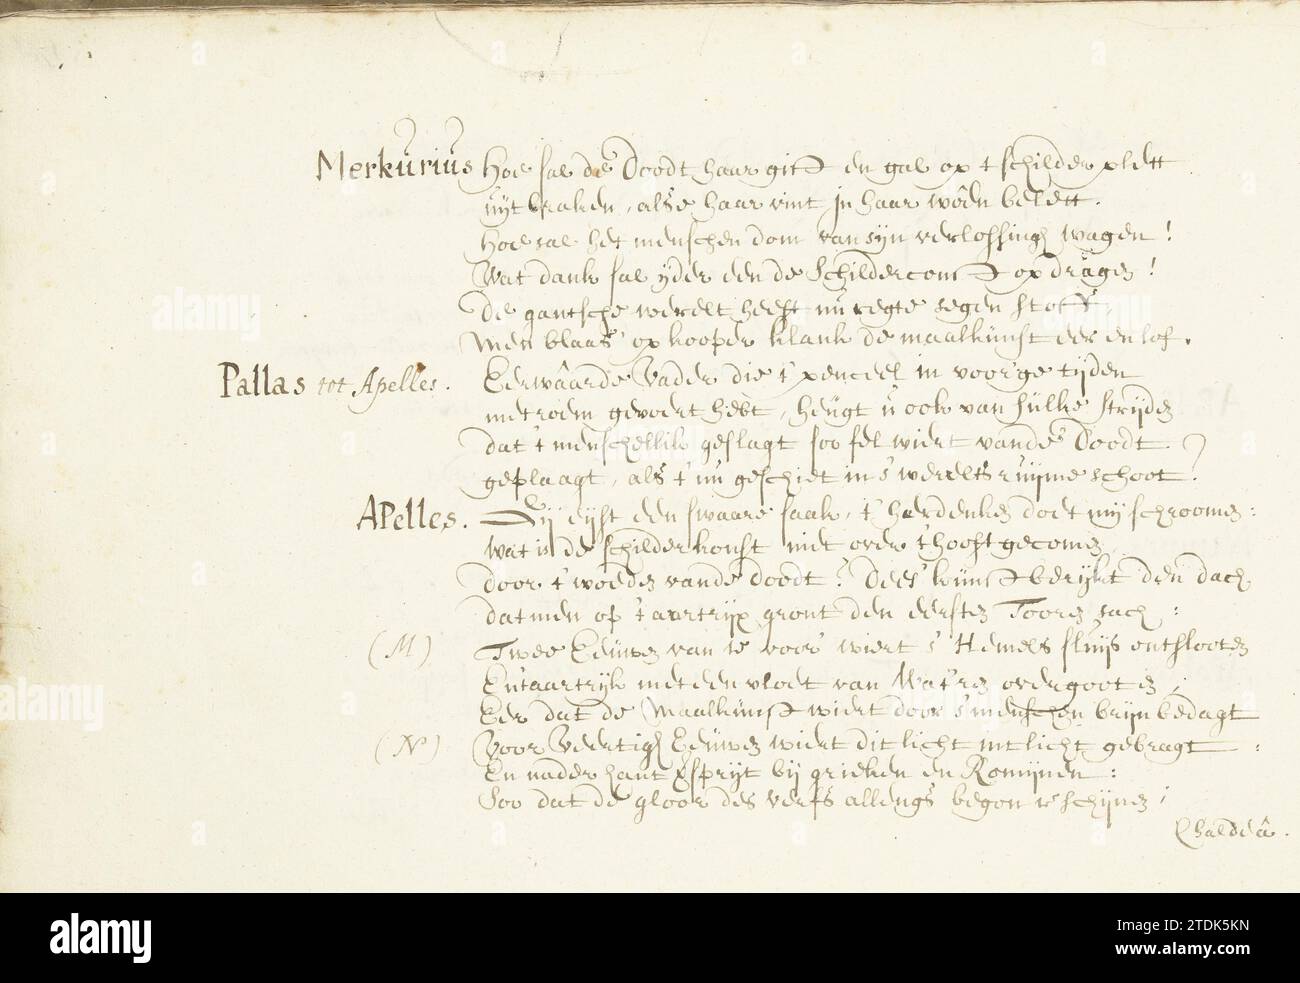 Merkurius Hoe sal de Doodt haar gift en gal op t schilder plett
uyt braken, als'e haar vint in haar woên belett.
Hoe sal het menschen dom van syn verlossingh wagen!
Wat dank sal yder een de Schilderconst opdragen!
De gantsche werelt heeft nu regte segen stoff,
Men blaas' op kooper klank de maalkunst eer en lof.
Pallas tot Apelles. Eerwâarde Vader die t' penceel in voor'ge tijden
met roem gevoert hebt, heugt u ook van sulke strijden
dat 't menschellik geslagt soo fel wiert van de' Doodt
geplaagt, als 't nu geschiet in s' werelts ruijme schoot?
APelles. Gij eijst een swaare saak, t' herdenken doet mij schroomen:
wat is de schilderkonst niet over 't hooft gecomen
door t' woeden van de doodt? Dees' kunst berijkt den dach
dat men op 't aartrijx gront den eersten Toorn sach:
(M) Twee Eeuwen van te voor' wiert s' Hemels sluijs ontslooten
En 't aartrijk met een vloet van Wat'ren overgooten;
Eer dat de Maalkunst wiert door s' menschen brijn bedagt
(N) Voor Veertigh Eeuwen wiert dit licht int licht gebragt:
En naderhant gespryt bij grieken en Romijnen:
Soo dat de gloor des verfs allengs begon te schijnen;
Chaldeâ.
alamy
Image ID: 2TDK5KN
www.alamy.com